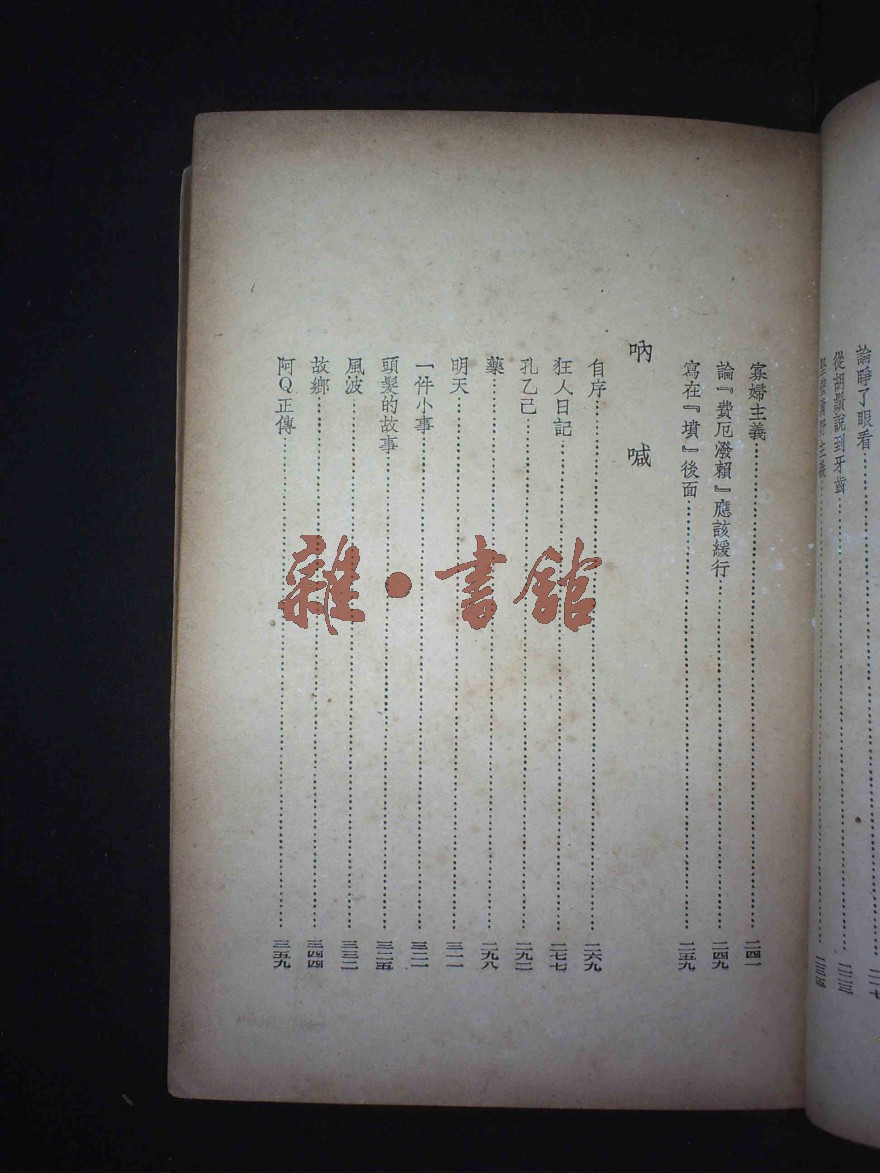 論睜了眼看……二一七
從胡鬚說到牙齒……二二三
堅壁清野主義……二三五
寡婦主義……二四一
論『費厄潑賴』應該緩行……二四九
寫在『墳』後面……二五九
吶喊
自序……二六九
狂人日記……二七七
孔乙己……二九二
藥……二九八
明天……三一一
一件小事……三二一
頭髮的故事……三二五
風波……三三二
故鄉……三四四
阿Q正傳……三五九
雜·書館